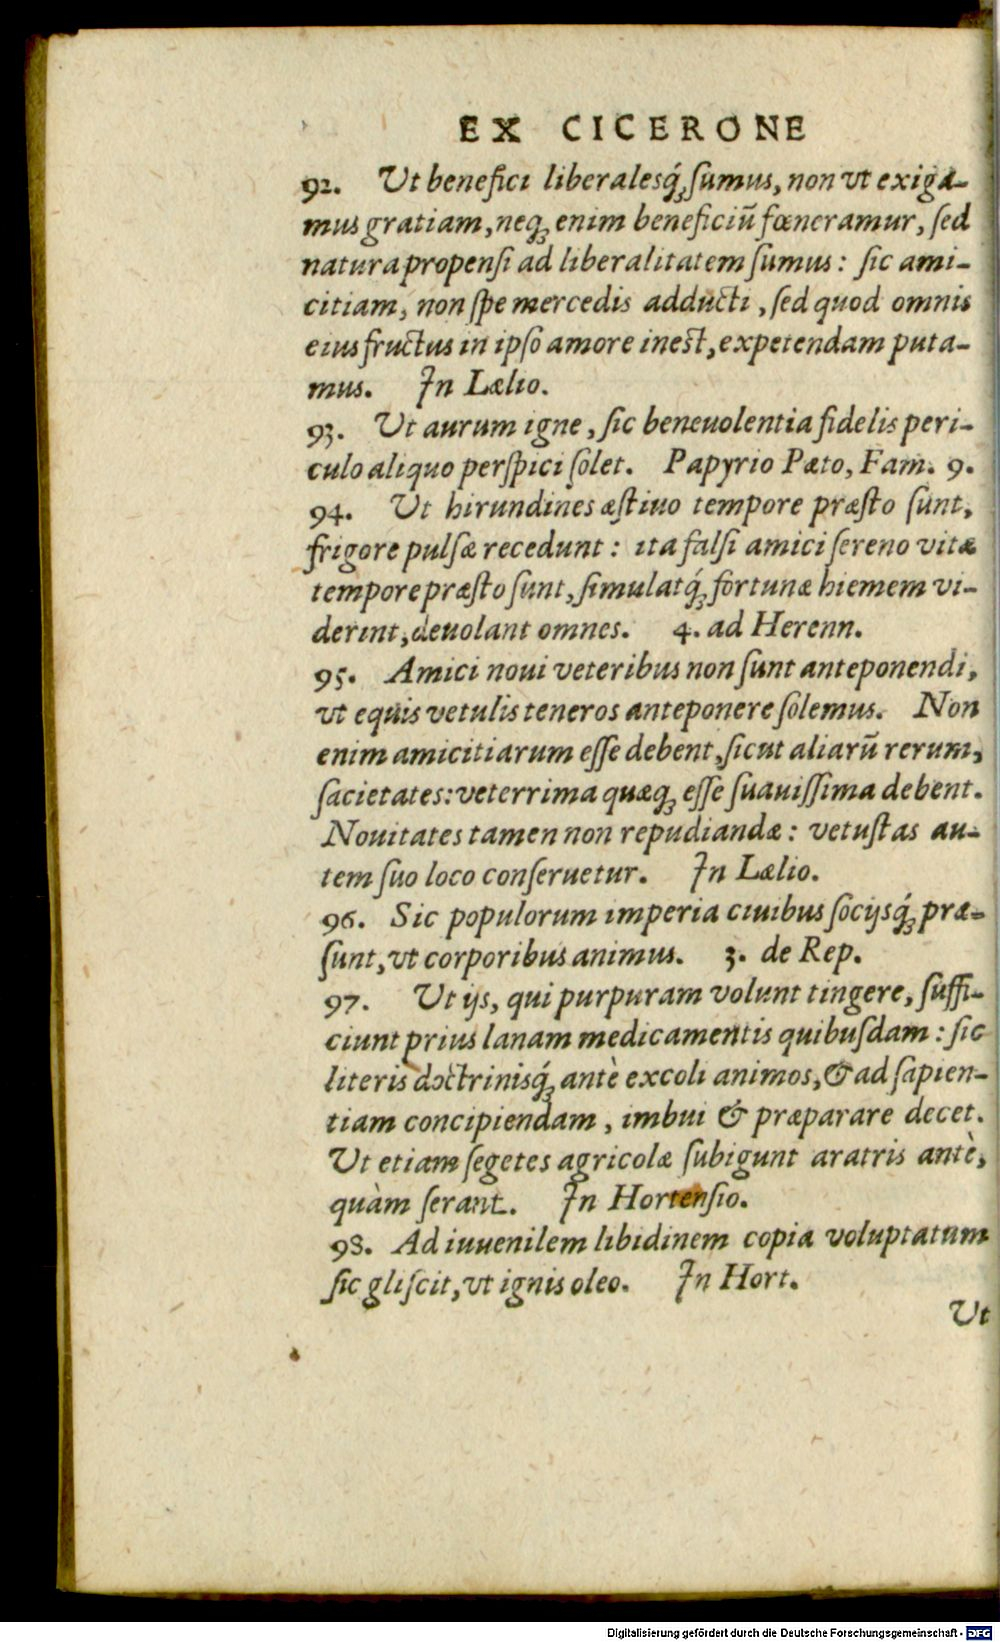 EX CICERONE
92. Ut benefici liberalesq́; ſumus, non vt exiga-
mus gratiam, neq; enim beneficiū fœneramur, ſed
natura propenſi ad liberalitatem ſumus: ſic ami-
citiam, non ſpe mercedis adducti, ſed quod omnis
eius fructus in ipſo amore ineſt, expetendam puta-
mus. In Lælio.
93. Ut aurum igne, ſic beneuolentia fidelis peri-
culo aliquo perſpici ſolet. Papyrio Pæto, Fam. 9.
94. Ut hirundines æſtiuo tempore præſto ſunt,
frigore pulſæ recedunt: ita falſi amici ſereno vitæ
tempore præſto ſunt, ſimulatq́; fortunæ hiemem vi-
derint, deuolant omnes. 4. ad Herenn.
95. Amici noui veteribus non ſunt anteponendi,
vt equis vetulis teneros anteponere ſolemus. Non
enim amicitiarum eſſe debent, ſicut aliarū rerum,
ſacietates: veterrima quæq; eſſe ſuauiſſima debent.
Nouitates tamen non repudiandæ: vetuſtas au-
tem ſuo loco conſeruetur. In Lælio.
96. Sic populorum imperia ciuibus ſocijsq́; præ-
ſunt, vt corporibus animus. 3. de Rep.
97. Ut ijs, qui purpuram volunt tingere, ſuffi-
ciunt prius lanam medicamentis quibuſdam: ſic
literis doctrinisq́; antè excoli animos, & ad ſapien-
tiam concipiendam, imbui & præparare decet.
Ut etiam ſegetes agricolæ ſubigunt aratris antè,
quàm ſerant. In Hortenſio.
98. Ad iuuenilem libidinem copia voluptatum
ſic gliſcit, vt ignis oleo. In Hort.
Ut
Digitalisierung gefördert durch die Deutsche Forschungsgemeinschaft - DFG